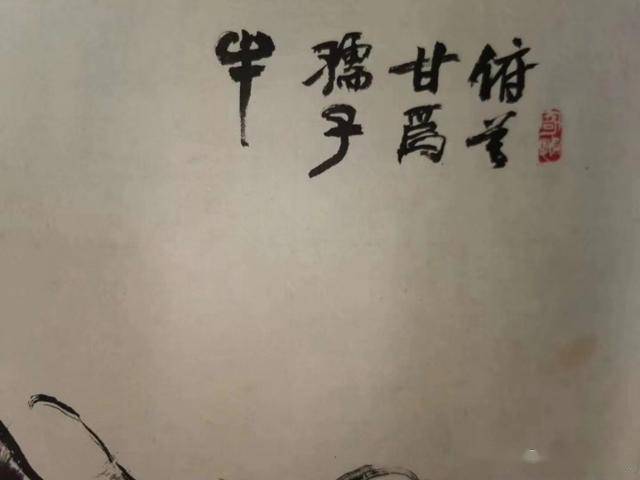 俯首
甘為
孺子
牛